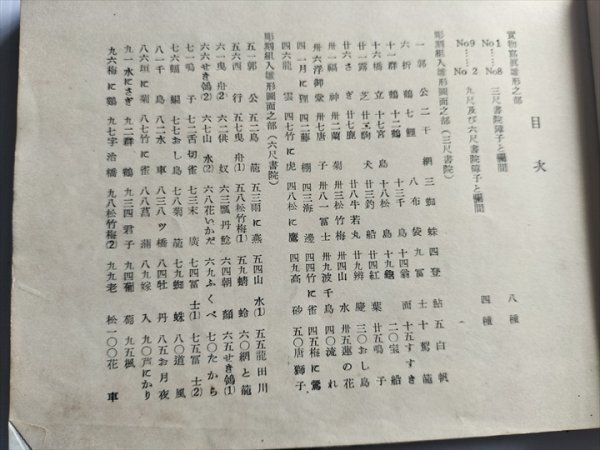 目次
實物寫眞雛形之部
No1―No8 三尺書院障子と欄間 八種
No9―No 2 九尺及び六尺書院障子と欄間 四種
彫刻組入雛形圖面之部(三尺書院)
一郭公 二干網 三蜘蛛 四登鮎 五白帆
六折鶴 七鯉 八布袋 九富士 十駕籠
十一群鶴 十二鶴 十三千鳥 十四翁面 十五すすき
十六橋立 十七宮島 十八松島 十九鼬 二〇寶船
廿一露芝 廿二駒 廿三釣船 廿四紅葉 廿五鳴子
廿六さぎ 廿七鹿 廿八牛若丸 廿九辨慶 三〇おし鳥
卅一福神 卅二蘭菊 卅三松竹梅 卅四山水 卅五蓮の花
卅六浮御堂 卅七唐子 卅八富士 卅九波千鳥 四〇流れ
四一月に狸 四二藤棚 四三海邊 四四竹に雀 四五梅に鶯
四六龍雲 四七竹に虎 四八松に鷹 四九高砂 五〇唐獅子
彫刻組入雛形圖面之部(六尺書院)
五一郭公 五二鳥籠 五三雨に燕 五四山水(1) 五五龍田川
五六四行 五七曳舟(1) 五八松竹梅(1) 五九蜻蛉 六〇網と籠
六一曳舟(2) 六二供奴 六三瓢丹鯰 六四朝顏 六五せき鴒(1)
六六せき鴒(2) 六七山水(2) 六八花いかだ 六九ふくべ 七〇たから
七一鳴子 七二舌切雀 七三末廣 七四富士(1) 七五富士(2)
七六蝙蝠 七七おし鳥 七八菊籠 七九蜘蛛 八〇道風
八一千鳥 八二水車 八三八ツ橋 八四牡丹 八五お月夜
八六垣に菊 八七竹に雀 八八菖蒲 八九嫁入 九〇芦にかり
九一水にさぎ 九二群鶴 九三四君子 九四葡萄 九五楓
九六梅に鶴 九七宇治橋 九八松竹梅(2) 九九老松 一〇〇花車